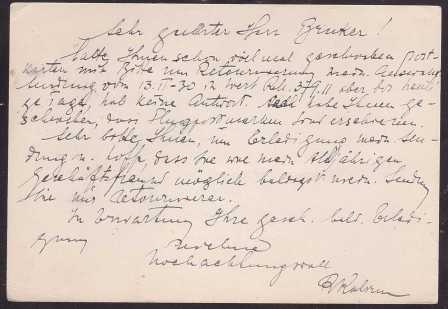 Sehr geehrter Herr
Hatte Ihnen schon viel mal geschrieben Post-
karten mit Bitte um Retournierung mein. Auswahl-
sendung vom 13.II-30 in Wert aber bis heuti-
ge Tage, hab keine Antwort. habe Ihnen ge-
schrieben, dass Flugpostmarken sind
Sehr bitte Ihnen, um Erledigung mein. Sen-
dung u. hoffe, dass Sie wie mein jährigen
Geschäftsfreund möglich baldigst mein. Sendung
Sie mir retournieren.
In Erwartung Ihre gesch. bald. Erledi-
gung
zeichne
Hochachtungsvoll